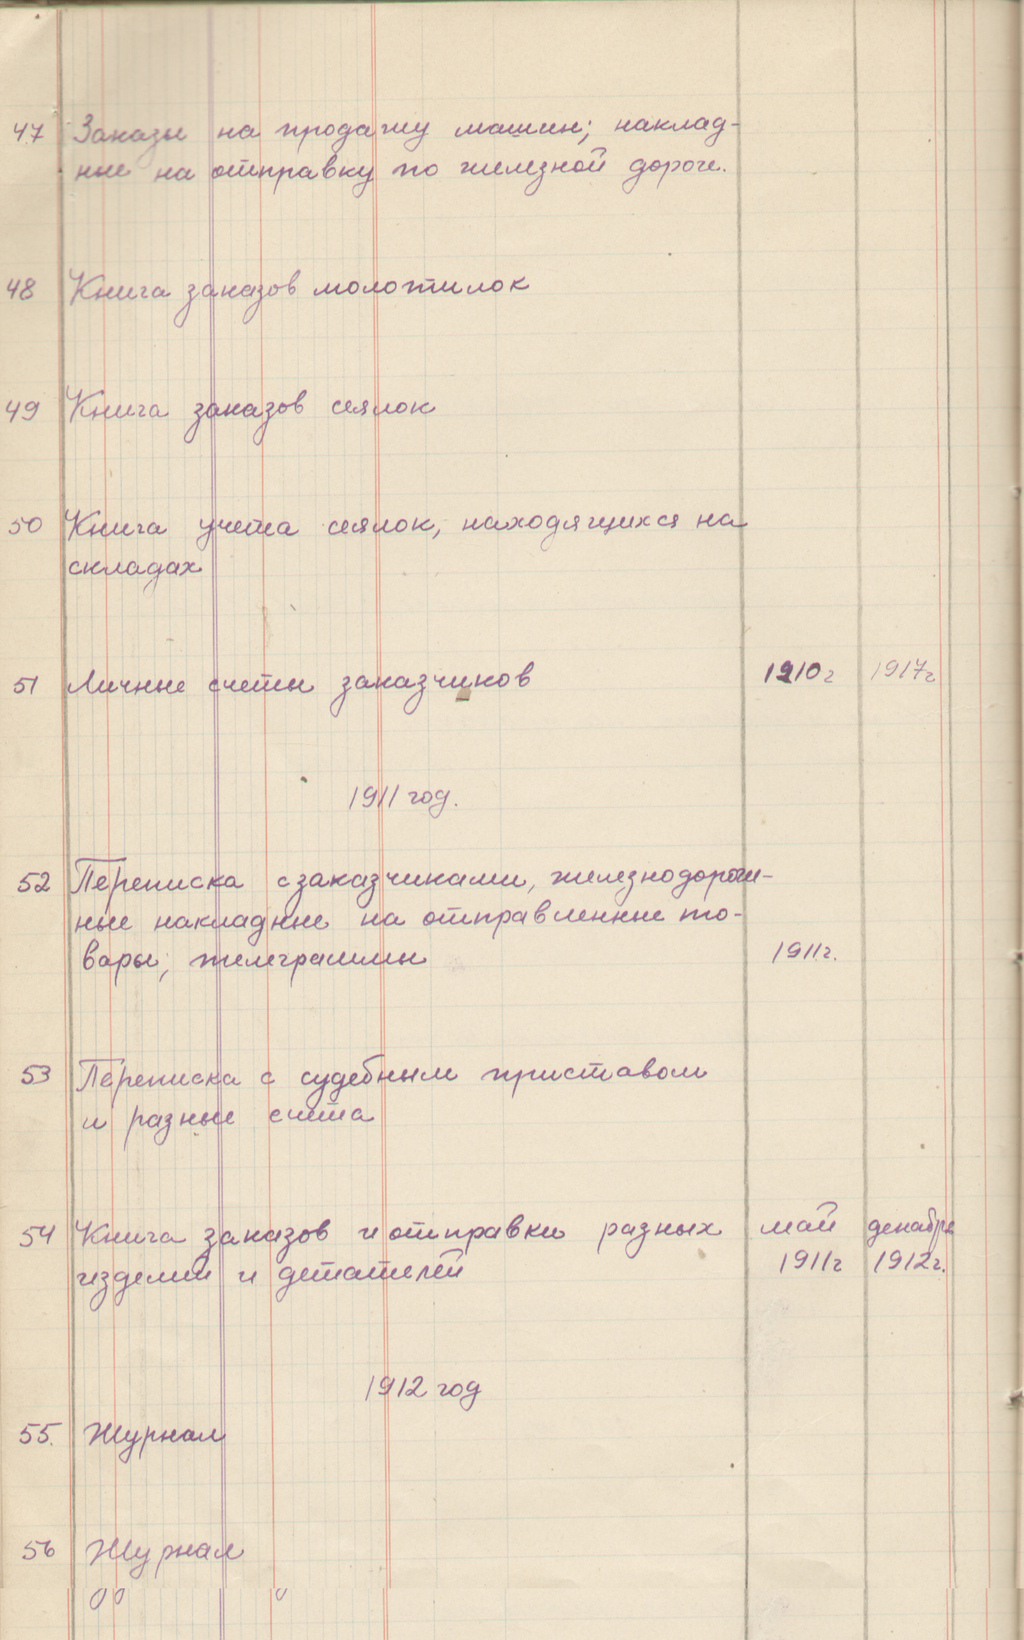 47 Заказы на продажу машин; наклад-
ные на отправку по железной дороге.
48 Книга заказов молотилок
49 Книга заказов сеялок
50 Книга учета сеялок, находящихся на
складах
51 Личные счеты заказчиков 1910г 1917г
1911 год.
52 Переписка с заказчиками, железнодорож-
ные накладные на отправленные то-
вары; телеграммы 1911г.
53 Переписка с судебным приставом
и разные счета
54 Книга заказов и отправки разных май декабрь
изделий и детателей 1911г 1912г.
1912 год
55. Журнал
56 Журнал